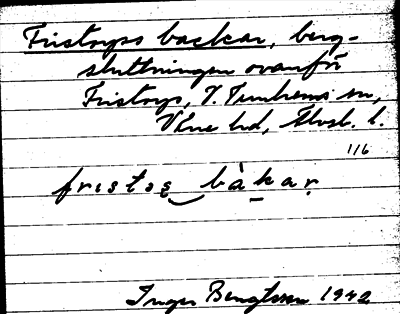 Fristorps backar, berg-
sluttningen ovanför
Fristorp, V. Tunhems sn,
Väne hd, Älvsb. l.
1/6
fristɔʂ bàkaṛ
Inger Bengtsson 1942